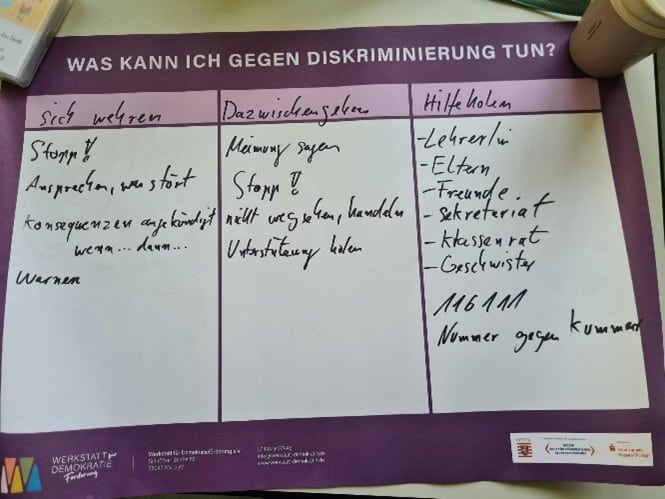 WAS KANN ICH GEGEN DISKRIMINIERUNG TUN?
Sich wehren
Stopp!
Ansprechen, was stört
Konsequenzen angekündigt
wenn... dann...
Warnen
Dazwischengehen
Meinung sagen
Stopp!
nicht wegsehen, handeln
Unterstützung holen
Hilfe holen
- LehrerIn
- Eltern
- Freunde.
- Sekretariat
- Klassenrat
- Geschwister
116111
Nummer gegen Kummer
WERKSTATT für
DEMOKRATIE
Förderung
Werkstatt für Demokratieförderung e.V.